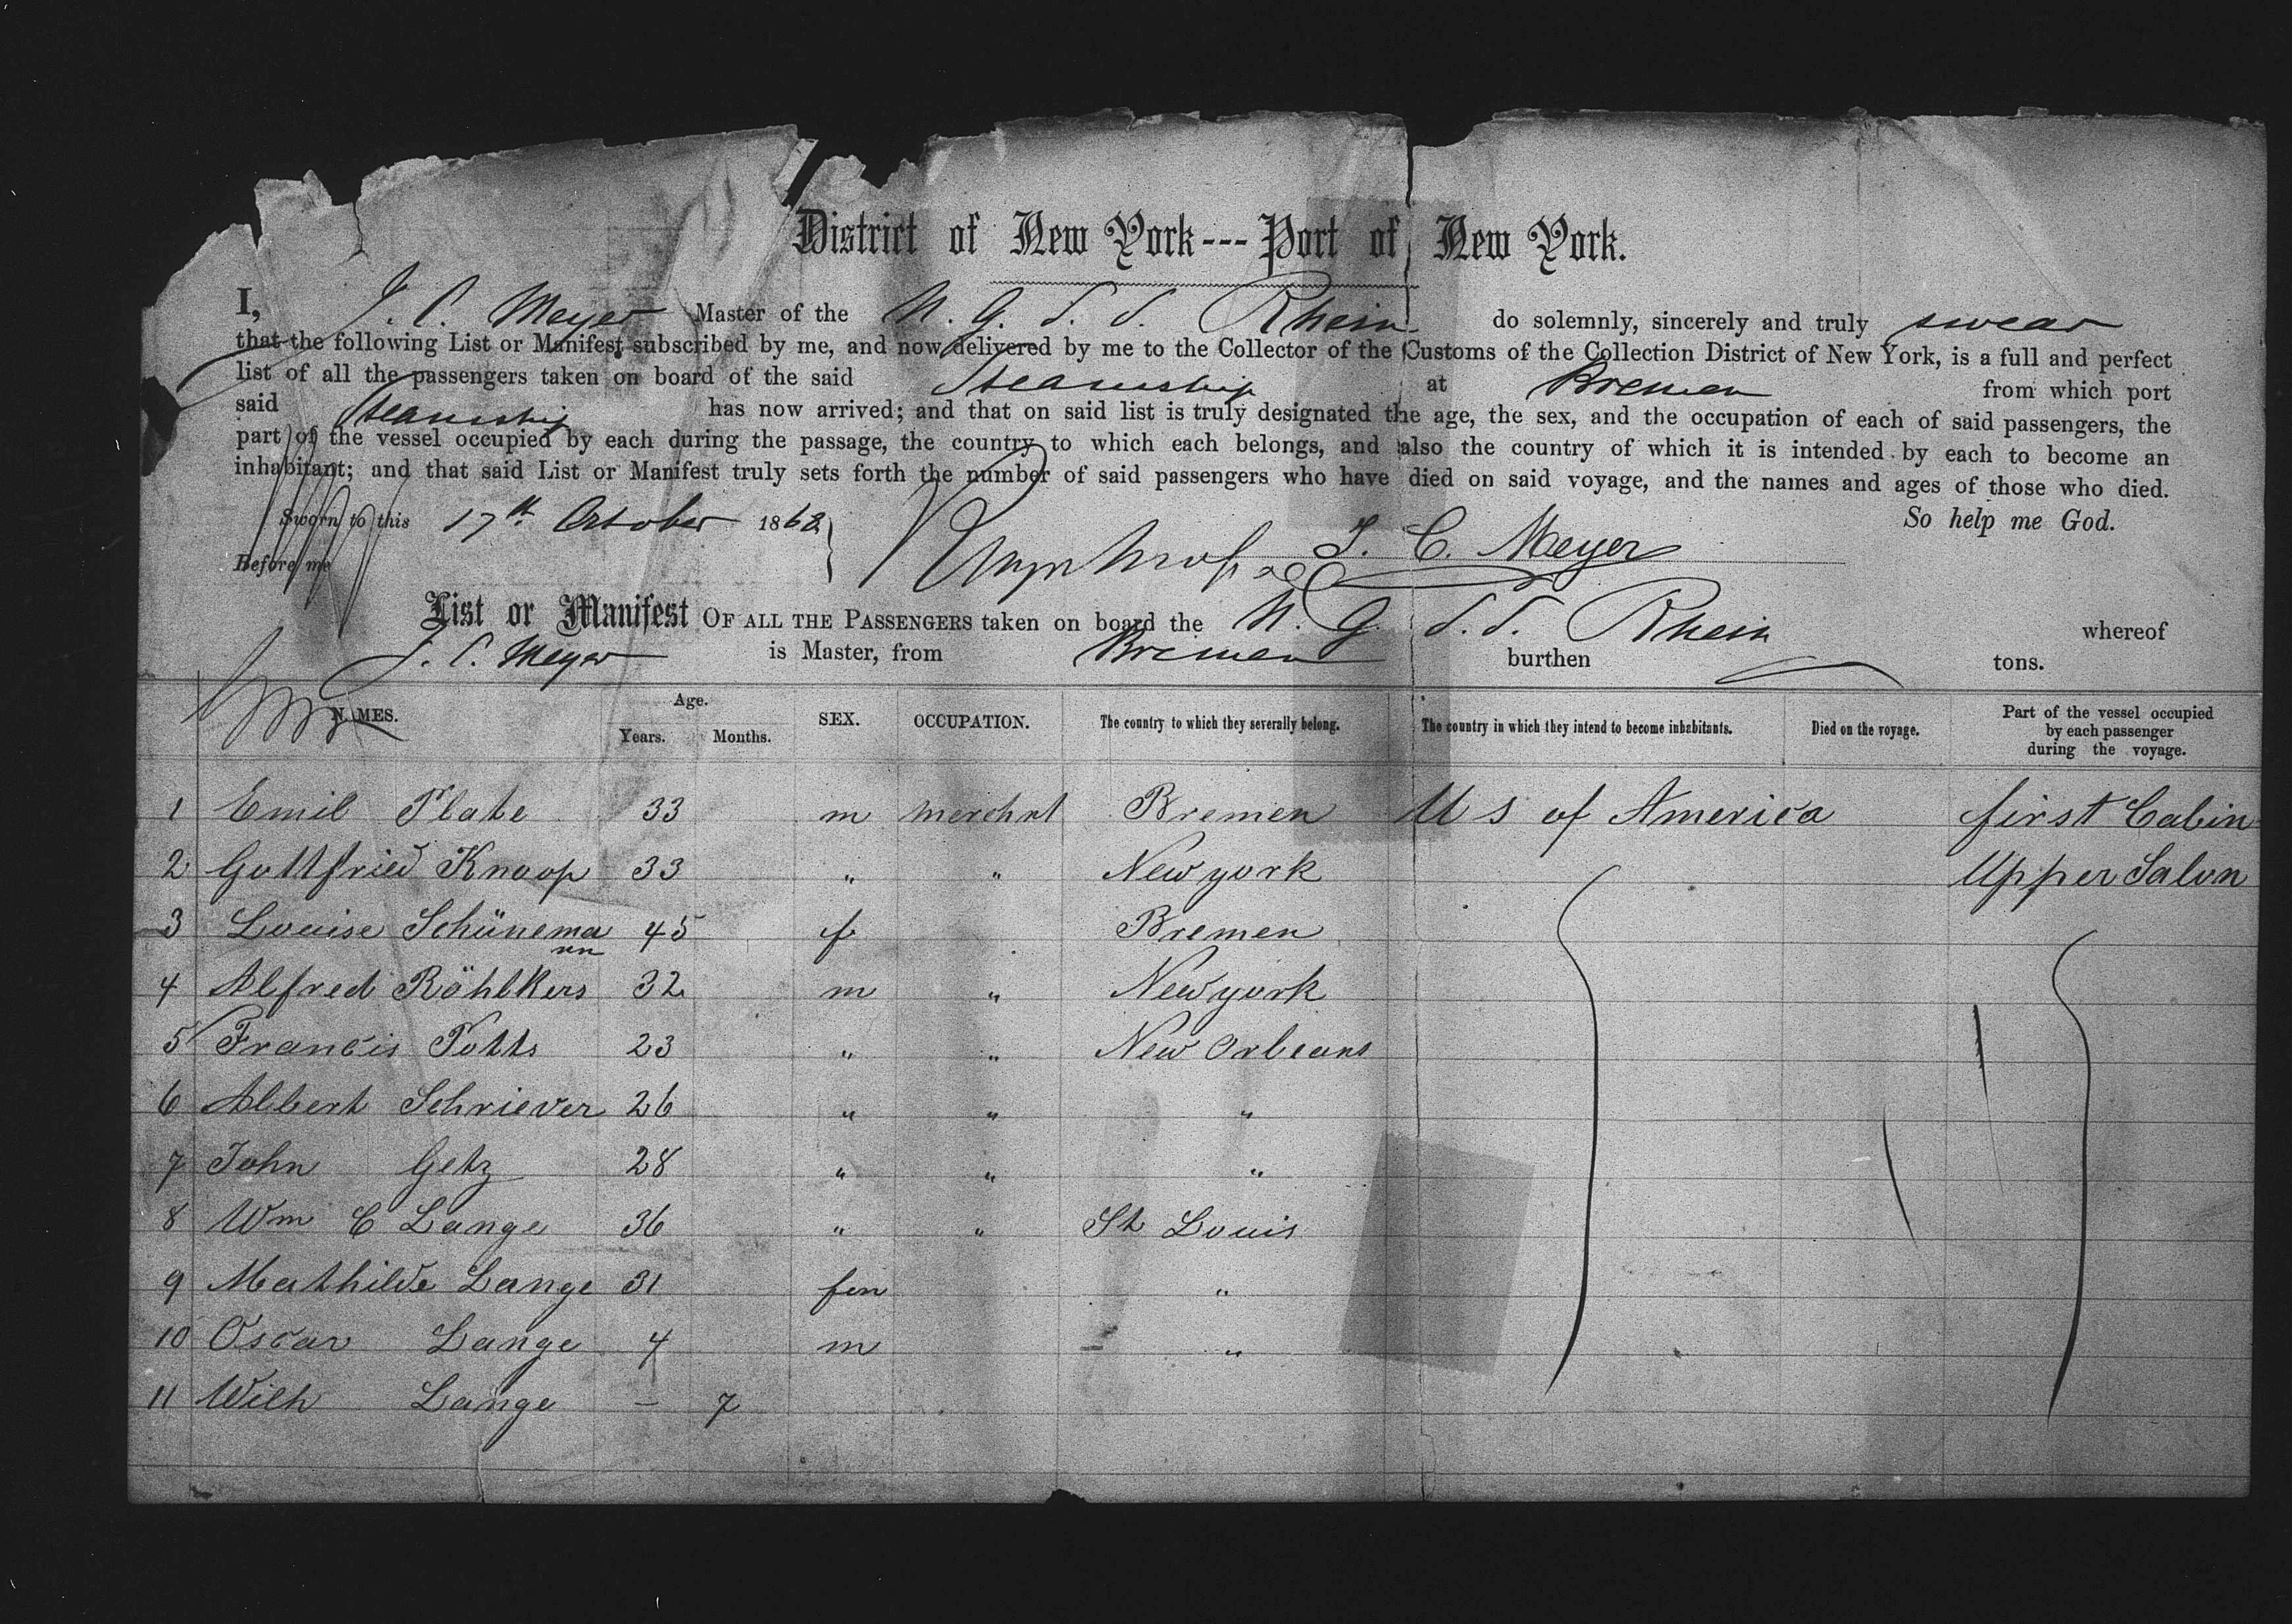 District of New York --- Port of New York.
I, J. C. Meyer Master of the N. G. S. S. Rhein do solemnly, sincerely and truly swear
that the following List or Manifest subscribed by me, and now delivered by me to the Collector of the Customs of the Collection District of New York, is a full and perfect
list of all the passengers taken on board of the said Steamship at Bremen from which port
said Steamship has now arrived; and that on said list is truly designated the age, the sex, and the occupation of each of said passengers, the
part of the vessel occupied by each during the passage, the country to which each belongs, and also the country of which it is intended by each to become an
inhabitant; and that said List or Manifest truly sets forth the number of said passengers who have died on said voyage, and the names and ages of those who died.
Sworn to this 17th October 1868 So help me God.
Before me J. C. Meyer
List or Manifest OF ALL THE PASSENGERS taken on board the N. G. S. S. Rhein whereof
J. C. Meyer is Master, from Bremen burthen tons.
NAMES. Age. Years. Months. SEX. OCCUPATION. The country to which they severally belong. The country in which they intend to become inhabitants. Died on the voyage. Part of the vessel occupied by each passenger during the voyage.
1 Emil Plate 33 m merchnt Bremen U S of America first Cabin
2 Gottfried Knoop 33 " " New york Upper Salon
3 Louise Schünemann 45 f Bremen
4 Alfred Röhlkers 32 m " New york
5 Francis Potts 23 " " New Orleans
6 Albert Schriever 26 " " "
7 John Getz 28 " " "
8 Wm C Lange 36 " " St Louis
9 Mathilde Lange 31 fem "
10 Oscar Lange 4 m "
11 Wilh Lange – 7